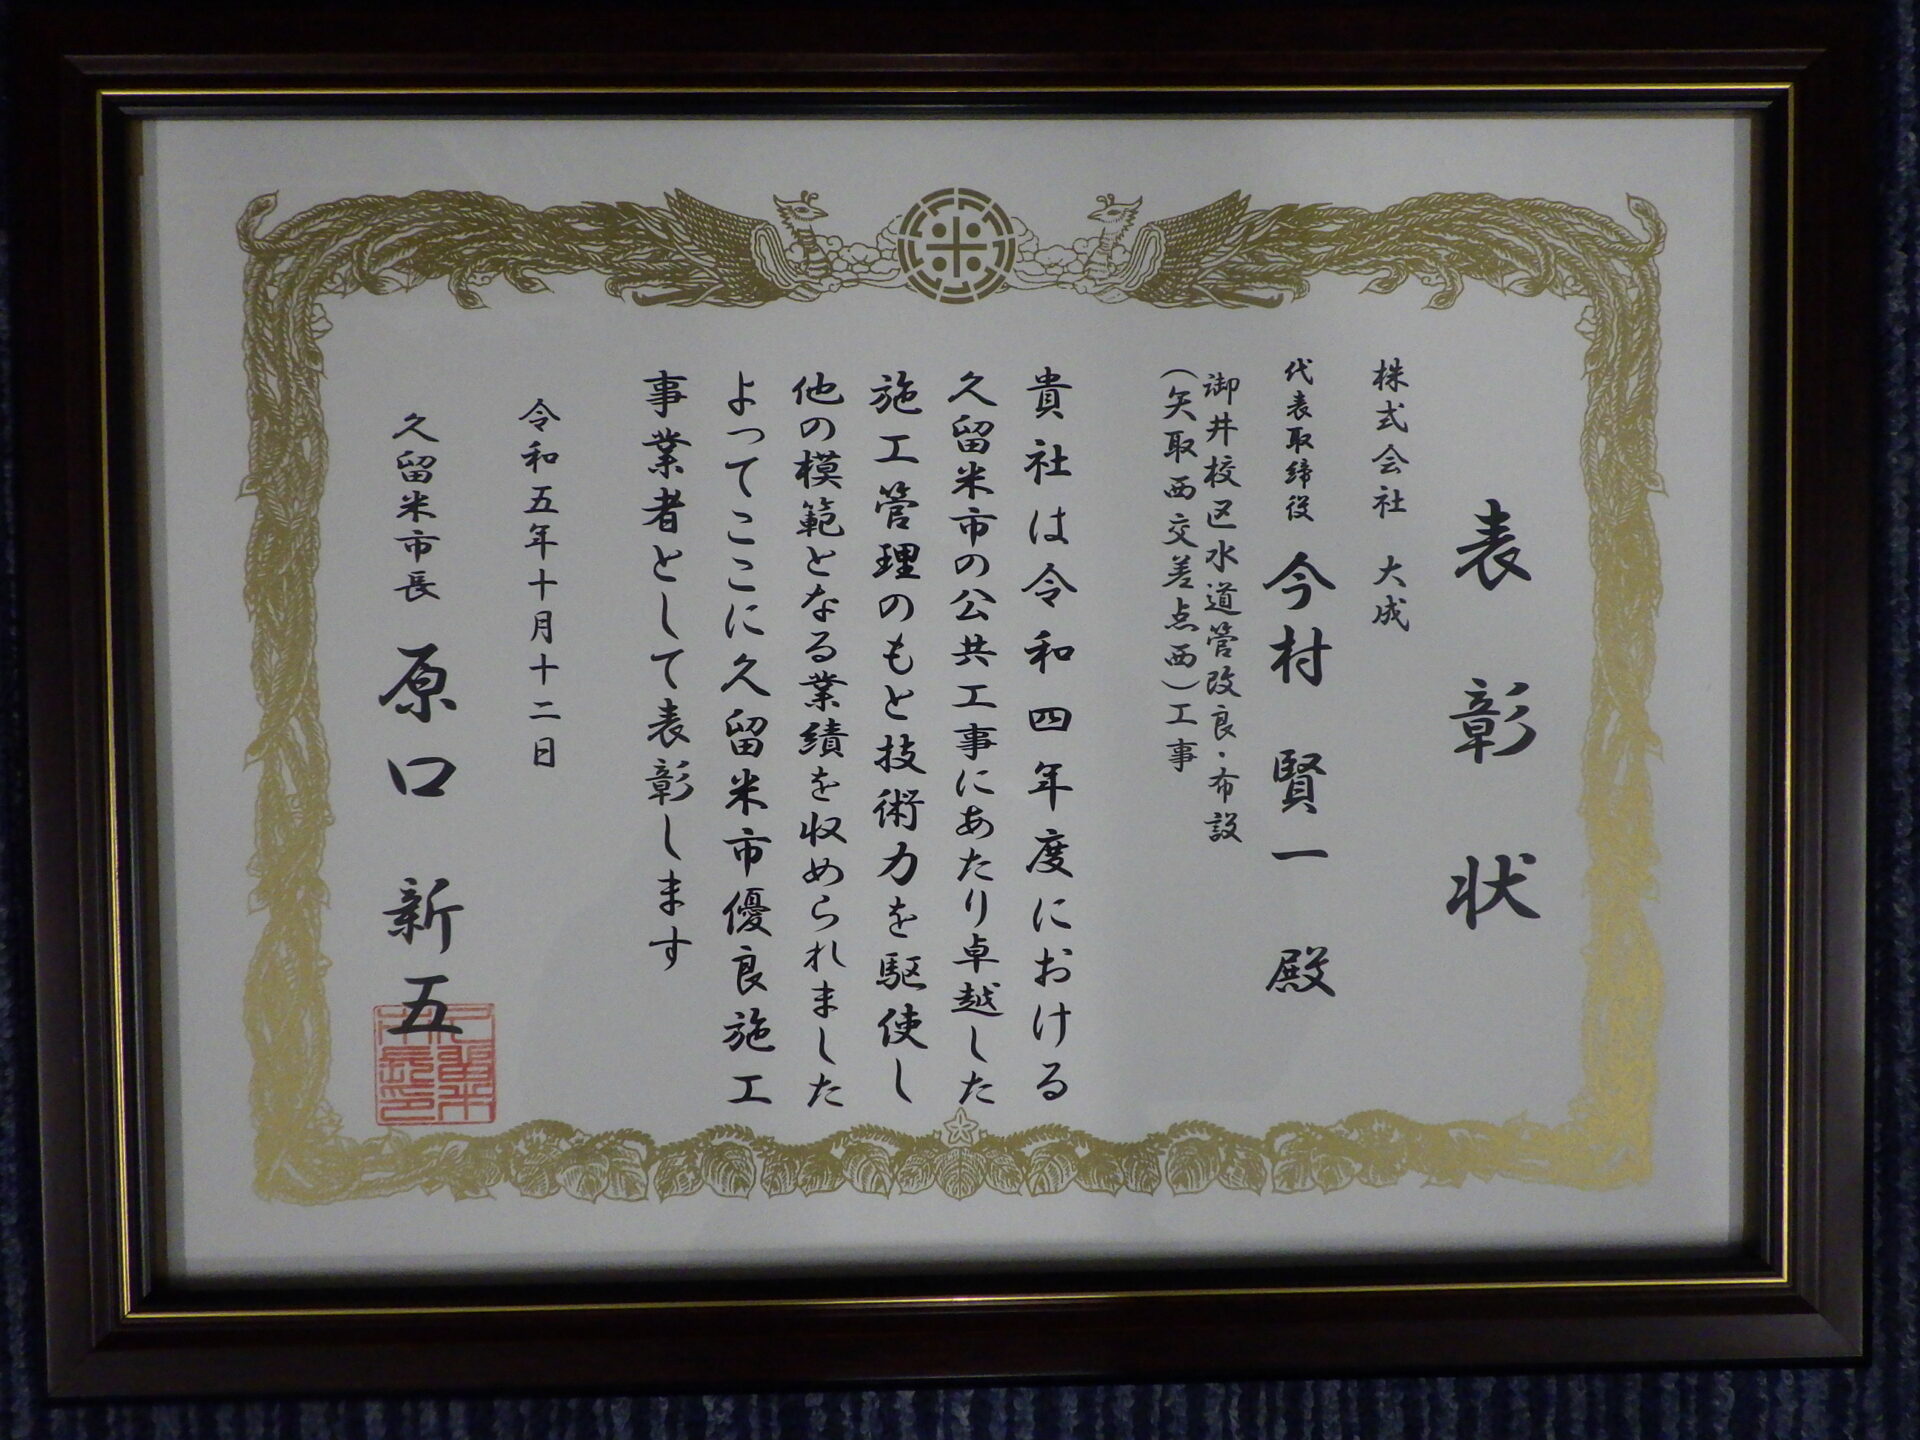 表彰状
株式会社 大成
代表取締役 今村 賢一 殿
御井校区水道管改良・布設
(矢取西交差点西)工事
貴社は令和四年度における
久留米市の公共工事にあたり卓越した
施工管理のもと技術力を駆使し
他の模範となる業績を収められました
よってここに久留米市優良施工
事業者として表彰します
令和五年十月十二日
久留米市長 原口 新五
久留米市長之印